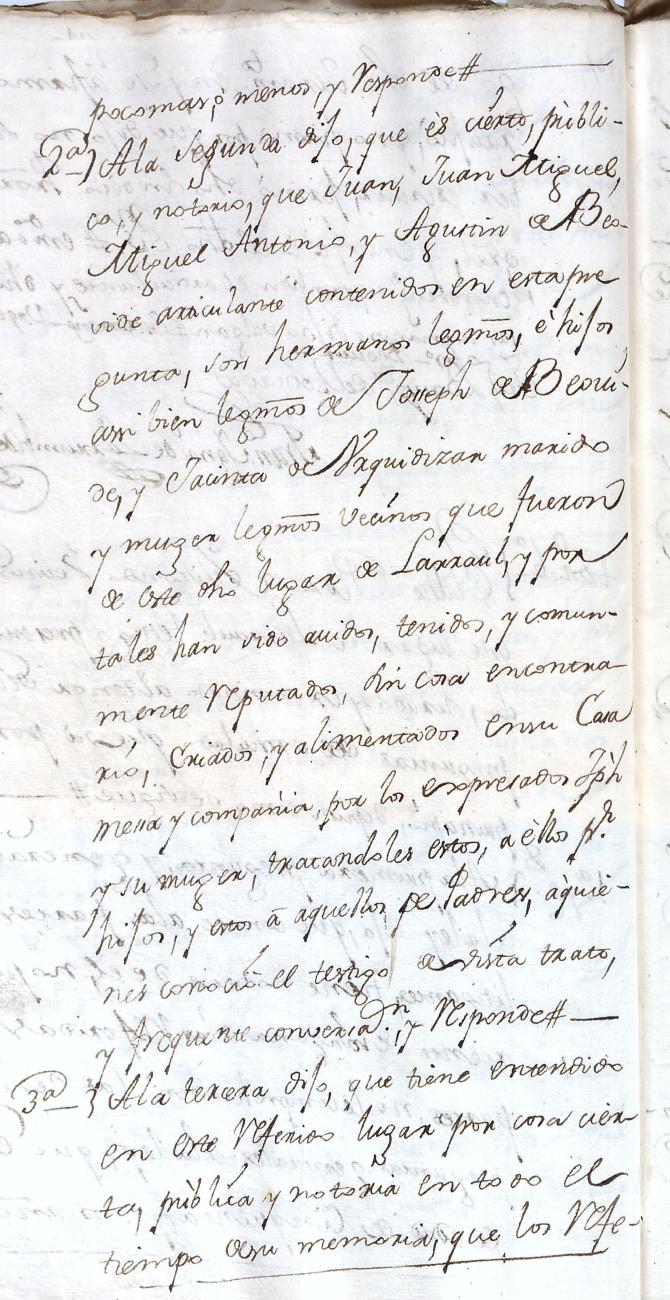 poco mas, ò menos, y responde#
2ª) A la segunda dijo, que ès cierto, pùbli-
co, y notorio, que Juan, Juan Miguel,
Miguel Antonio, y Agustin de Beo-
vide articulante contenidos en esta pre
gunta, son hermanos legmos, è hijos
assi bien legmos de Joseph de Beovi-
de, y Jacinta de Urquidizar marido
y muger legmos vecinos que fueron
de èste dho lugar de Larraul, y por
tales han sido avidos, tenidos, y comun-
mente reputados, sin cosa encontra-
rio, Criados, y alimentados en su Casa
messa y compañia, por los, expresados Jph
y su muger, tratandoles èstos, a èllos pr.
hijos, y estos à àquellos de Padres, àquie-
nes conociò el testigo de vista trato,
y frequente conversaon, y responde#
3ª) A la tercera dijo, que tiene entendido
en este referido lugar por cosa cier-
ta, pùblica y notoria en todo el
tiempo de su memoria, que los refe-